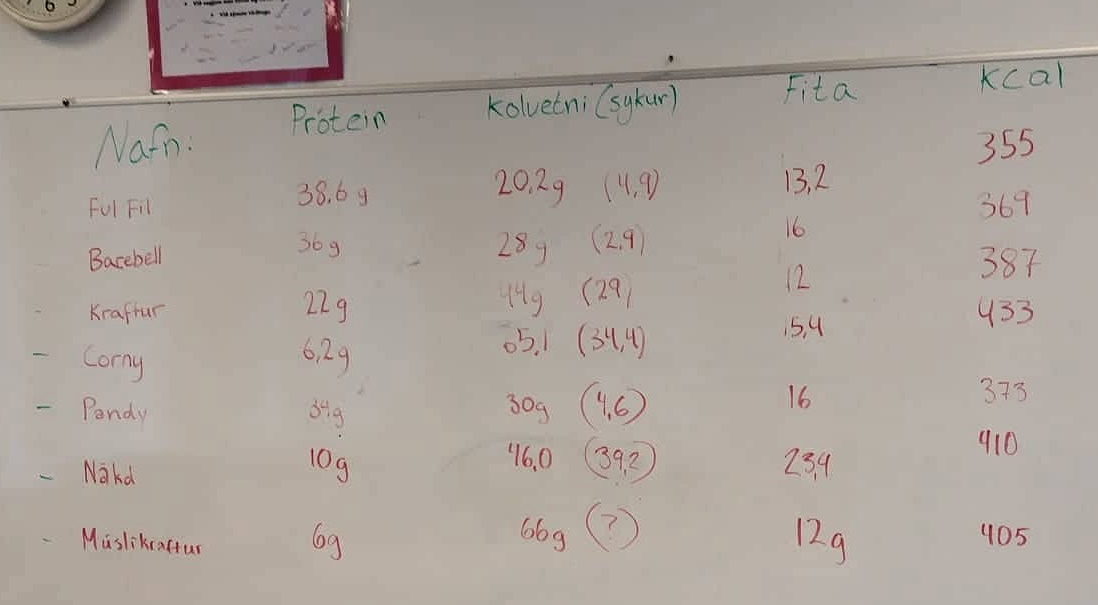 6
Nafn: Prótein Kolvetni (sykur) Fita Kcal
Ful Fil 38,6 g 20,2g (4,9) 13,2 355
Barebell 36g 28g (2,9) 16 369
- Kraftur 22g 44g (29) 12 387
- Corny 6,2g 65,1 (34,4) 15,4 433
- Pandy 34g 30g (4,6) 16 373
- Näkd 10g 46,0 (39,2) 23,9 410
- Múslikraftur 6g 66g (?) 12g 405